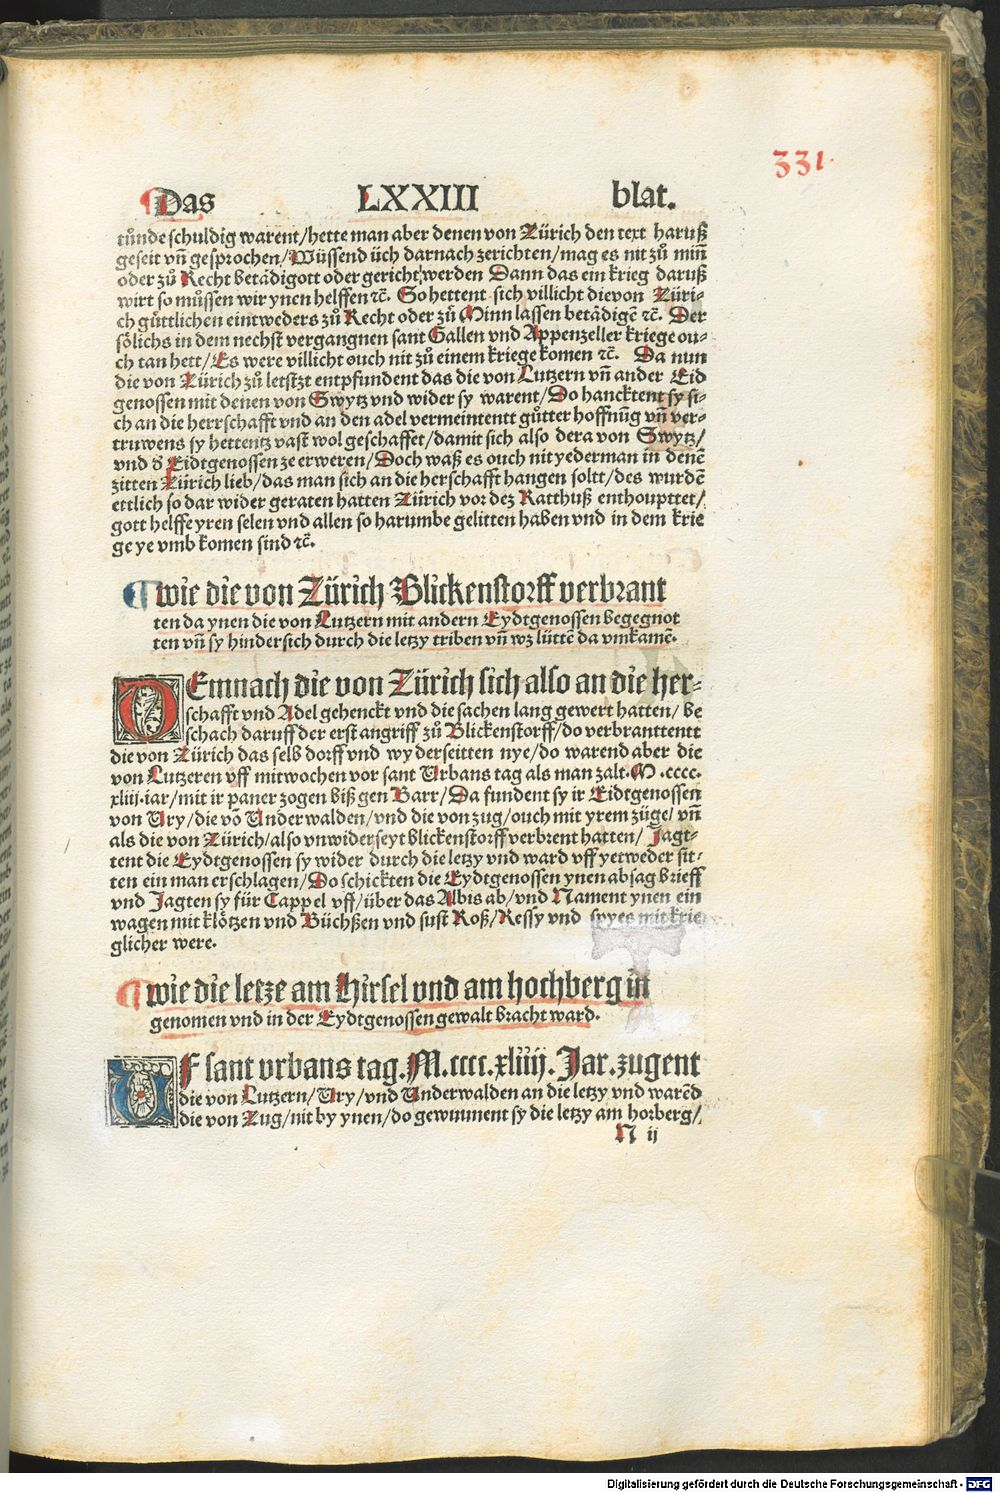 331.
Das LXXIII blat.
tůnde schuldig warent/hette man aber denen von Zürich den text haruß
geseit vn̄ gesprochen/Wüssend üch darnach zerichten/mag es nit zů min̄
oder zů Recht betädigott oder gericht werden Dann das ein krieg daruß
wirt so můssen wir ynen helffen ⁊c̄. So hettent sich villicht die von Züri-
ch gůttlichen eintweders zů Recht oder zů Minn lassen betädigē ⁊c̄. Der
sőlichs in dem nechst vergangnen sant Gallen vnd Appenzeller kriege ou-
ch tan hett/Es were villicht ouch nit zů einem kriege komen ⁊c̄. Da nun
die von Zürich zů letstzt entpfundent das die von Lutzern vn̄ ander Eid
genossen mit denen von Swytz vnd wider sy warent/Do hancktent sy si-
ch an die herrschafft vnd an den adel vermeintentt gůtter hoffnūg vn̄ ver-
truwens sy hettentz vast wol geschaffet/damit sich also dera von Swytz/
vnd d̕ Eidtgenossen ze erweren/Doch waß es ouch nit yederman in denē
zitten Zürich lieb/das man sich an die herschafft hangen soltt/des wurdē
ettlich so dar wider geraten hatten Zürich vor dez Ratthuß enthoupttet/
gott helffe yren selen vnd allen so harumbe gelitten haben vnd in dem krie
ge ye vmb komen sind ⁊c̄.
¶ wie die von Zürich Blickenstorff verbrant
ten da ynen die von Lutzern mit andern Eydtgenossen begegnot
ten vn̄ sy hindersich durch die letzy triben vn̄ wz lüttē da vmkamē.
DEmnach die von Zürich sich also an die her-
schafft vnd Adel gehenckt vnd die sachen lang gewert hatten/ be
schach daruff der erst angriff zů Blickenstorff/do verbranttentt
die von Zürich das selb dorff vnd wyderseitten nye/do warend aber die
von Lutzeren vff mitwochen vor sant Urbans tag als man zalt.M.cccc.
xliii.iar/mit ir paner zogen biß gen Barr/Da fundent sy ir Eidtgenossen
von Ury/die vō Underwalden/vnd die von zug/ouch mit yrem züge/ vn̄
als die von Zürich/also vnwiderseyt blickenstorff verbrent hatten/ Jagt-
tent die Eydtgenossen sy wider durch die letzy vnd ward vff yetweder sit-
ten ein man erschlagen/Do schickten die Eydtgenossen ynen absag brieff
vnd Jagten sy für Cappel vff/über das Albis ab/vnd Nament ynen ein
wagen mit klőtzen vnd Büchßen vnd sust Roß/Ressy vnd spyes mit krie
glicher were.
¶ wie die letze am Hirsel vnd am hochberg in
genomen vnd in der Eydtgenossen gewalt bracht ward.
UF sant vrbans tag.M.cccc.xliiij.Jar.zugent
die von Lutzern/Ury/vnd Underwalden an die letzy vnd warēd
die von Zug/nit by ynen/do gewunnent sy die letzy am horberg/
N ij
Digitalisierung gefördert durch die Deutsche Forschungsgemeinschaft - DFG